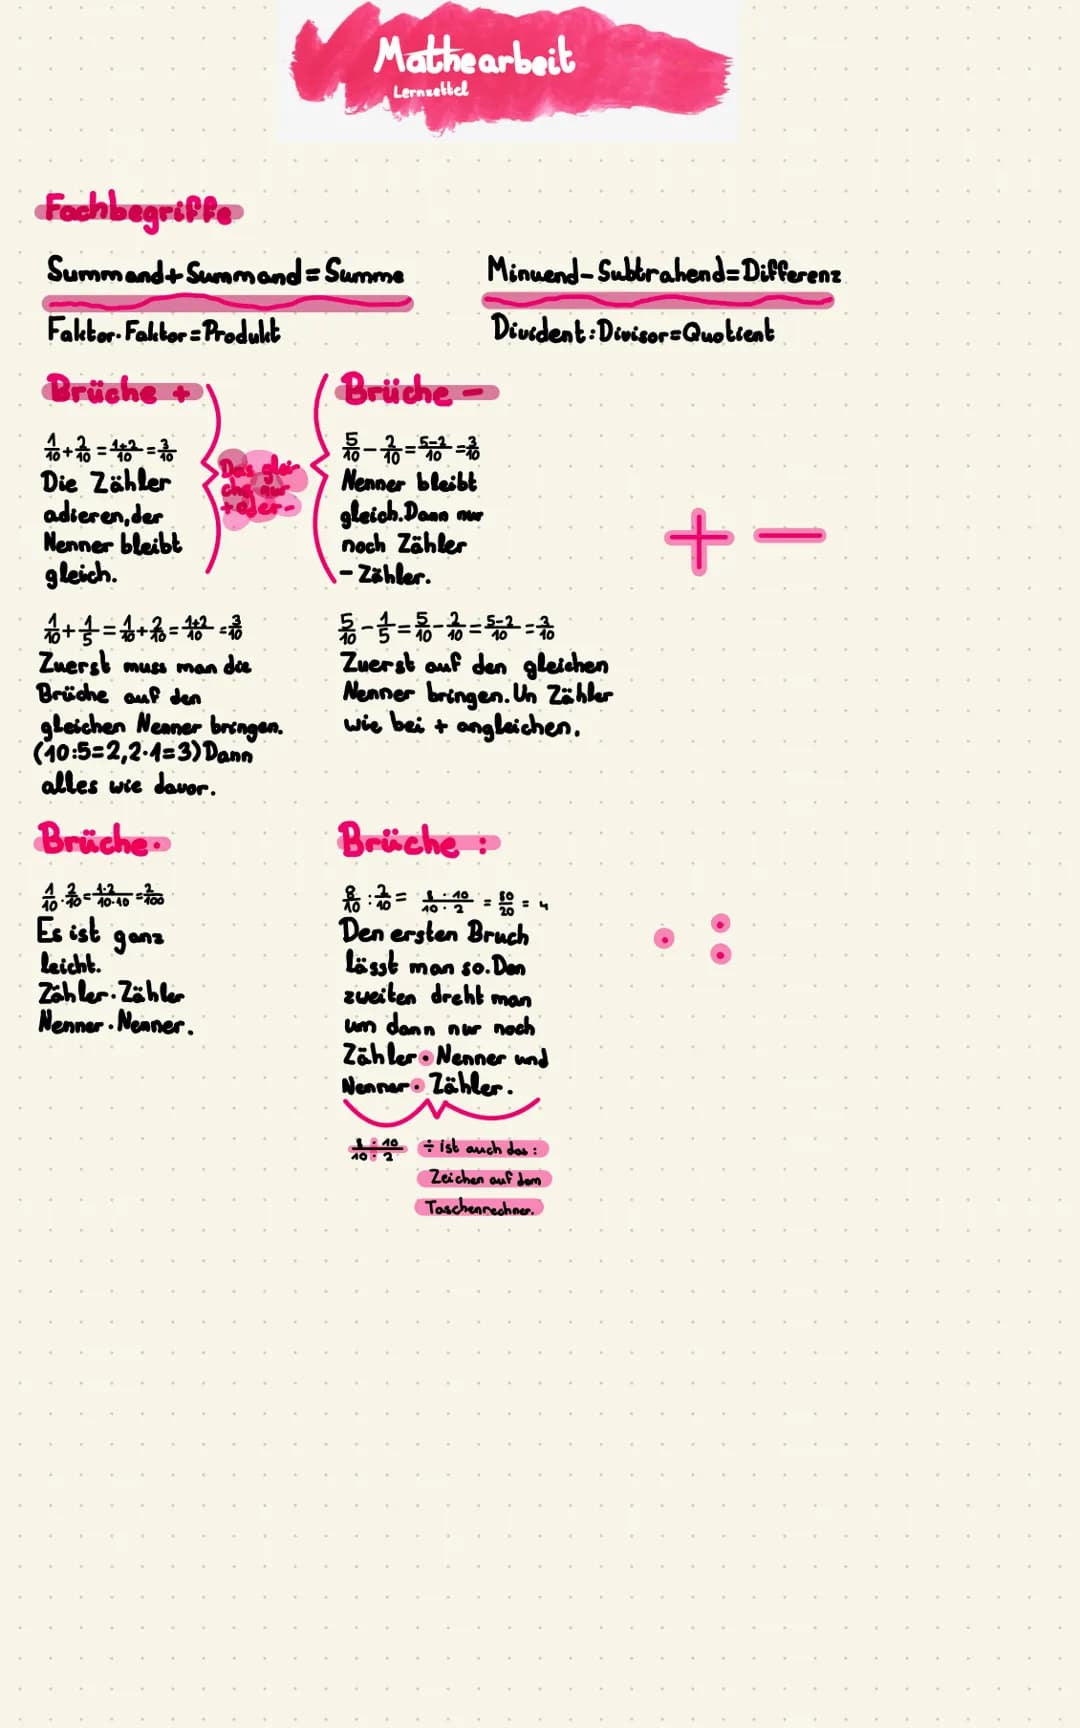 Mathearbeit
Lernzettel
Fachbegriffe
Summand+Summand=Summe
Minuend-Subtrahend=Differenz
Faktor·Faktor=Produkt
Divident:Divisor=Quotient
Brüche +
1/10+2/10=1+2/10=3/10
Die Zähler
adieren,der
Nenner bleibt
gleich.
Das glei-
che nur
+oder-
Brüche -
5/10-2/10=5-2/10=3/10
Nenner bleibt
gleich.Dann nur
noch Zähler
- Zähler.
+ -
1/10+1/5=1/10+2/10=1+2/10=3/10
Zuerst muss man die
Brüche auf den
gleichen Nenner bringen.
(10:5=2,2·1=3)Dann
alles wie davor.
5/10-1/5=5/10-2/10=5-2/10=3/10
Zuerst auf den gleichen
Nenner bringen.Un Zähler
wie bei + angleichen.
Brüche·
1/10·2/10=1·2/10·10=2/100
Es ist ganz
leicht.
Zähler·Zähler
Nenner·Nenner.
Brüche :
8/10:2/10=8·10/10·2=80/20=4
Den ersten Bruch
lässt man so.Den
zweiten dreht man
um dann nur noch
Zähler·Nenner und
Nenner·Zähler.
· :
8·10/10·2
÷ ist auch das :
Zeichen auf dem
Taschenrechner.